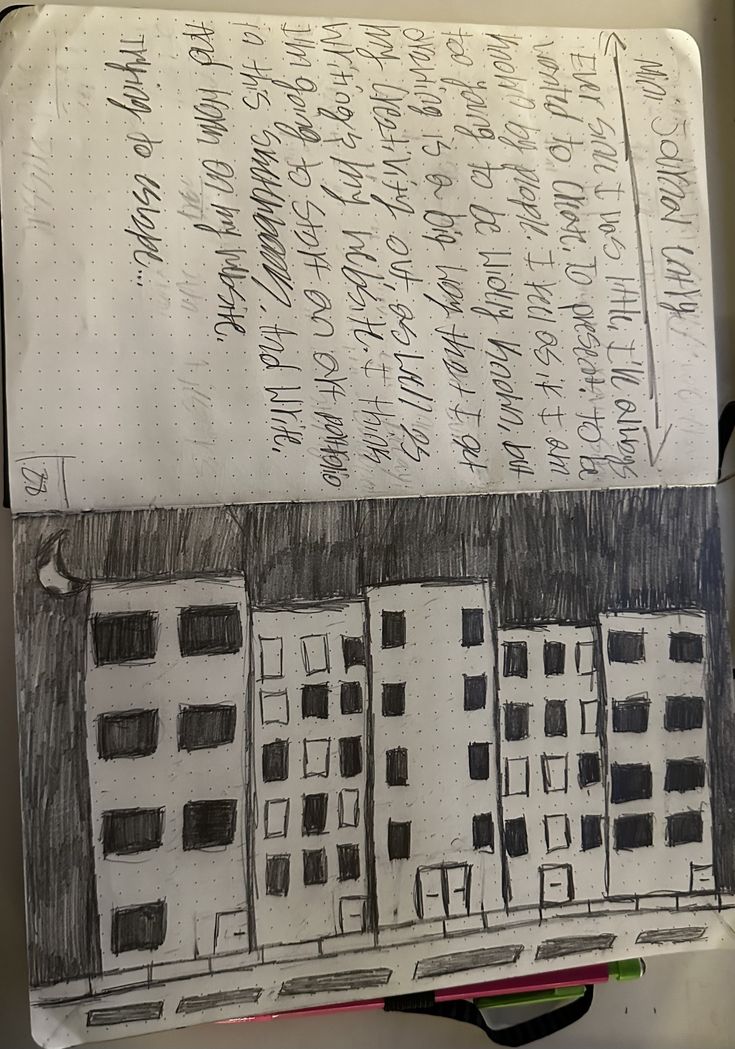 Mini Journal entry
Ever since I was little, I've always
wanted to create. To present. To be
known by people. I feel as if I am
too young to be widely known, but
drawing is a big way that I get
my creativity out as well as
writing my website. I think
I'm going to start an art portfolio
in this And write,
And born on my website.
Trying to escape...
22